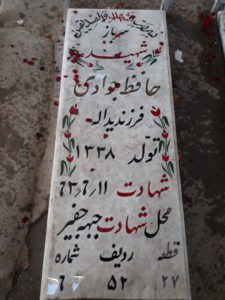 سرباز
شهید
حافظ جوادی
فرزند یداله
تولد ۱۳۳۸
شهادت ۶۳/۶/۱۱
محل شهادت جبهه جفیر
قطعه ردیف شماره
۲۷ ۵۲ ۶